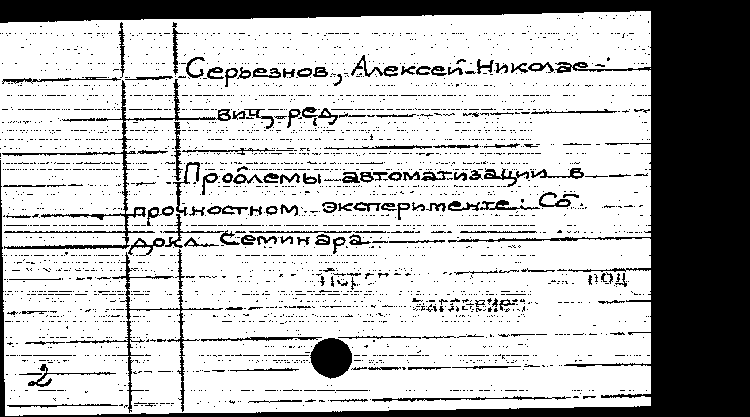 Серьезнов, Алексей Николае-
вич, ред.
Проблемы автоматизации в
прочностном эксперименте: Сб.
докл. Семинара
под
заглавием
2